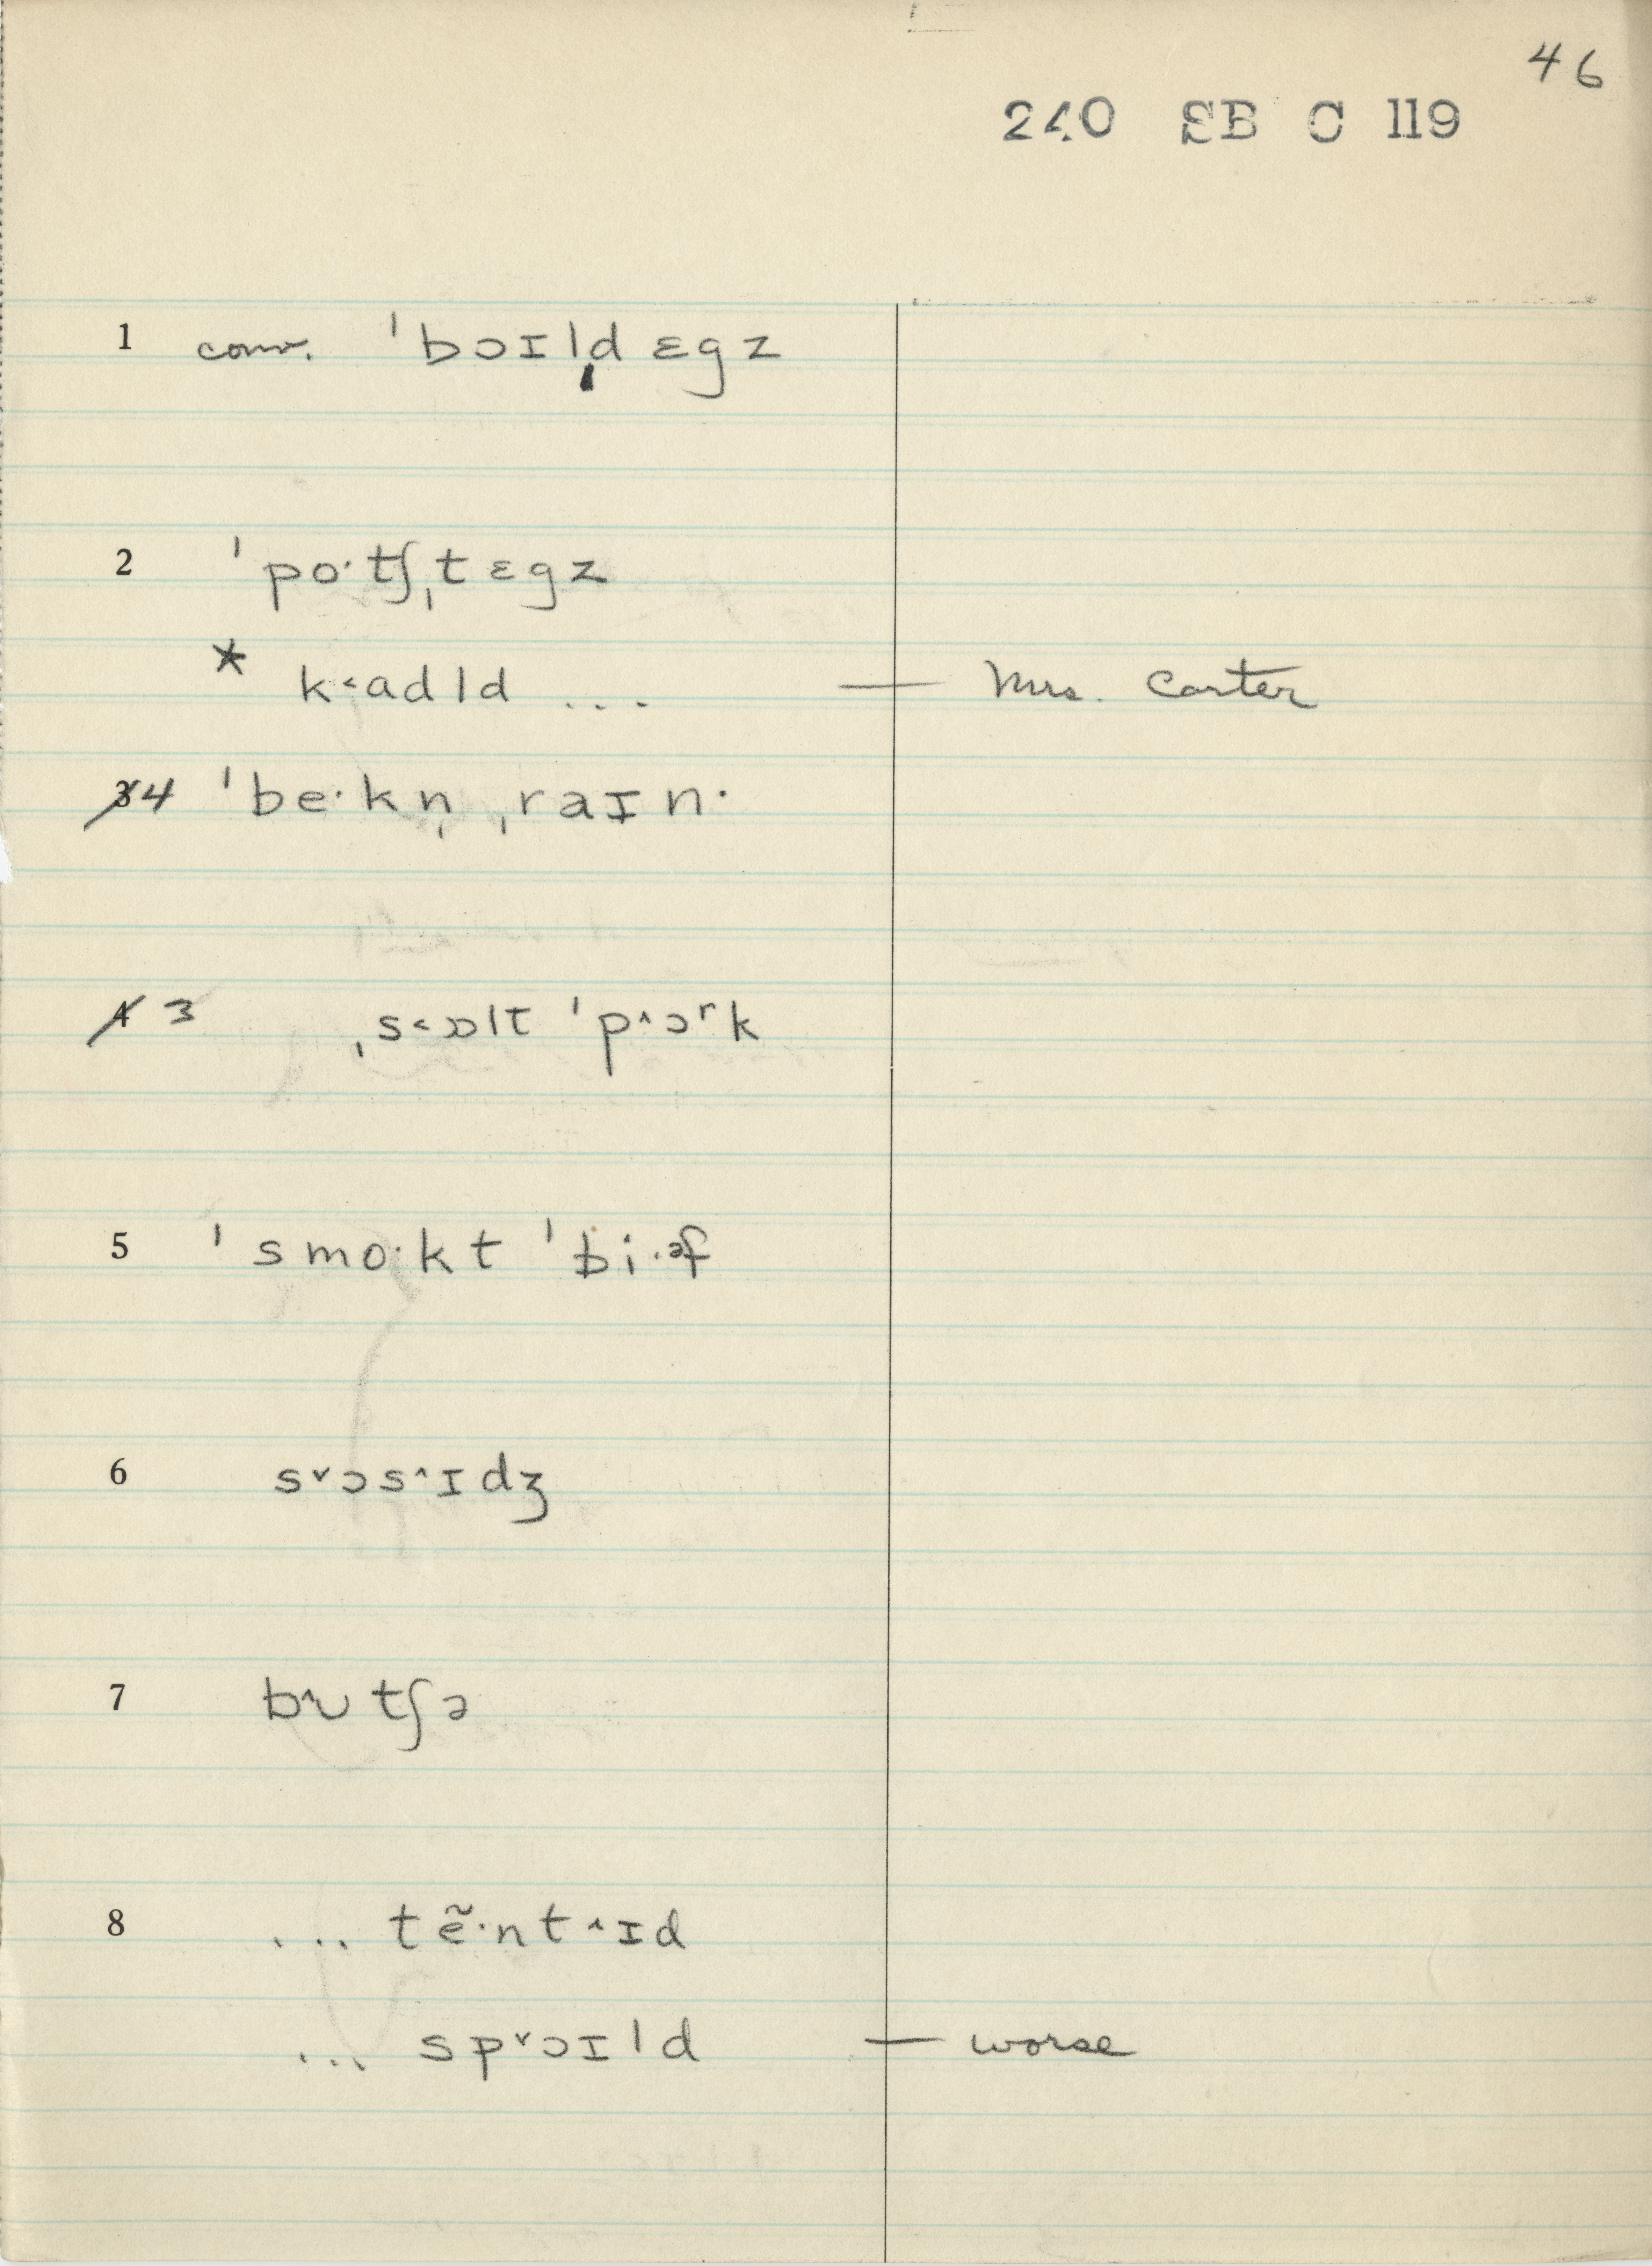 46
240 SB C 119
1 conv. ˈbɔɪlˌd ɛgz
2 ˈpoˑtʃˌt ɛgz
* k˂adld ... — Mrs. Carter
3 4 ˈbeˑkn̩ ˌraɪnˑ
4 3 ˌs˂ɒlt ˈp˄ɔʳk
5 ˈsmoˑkt ˈbiˑᵊf
6 s˅ɔs˄ɪdʒ
7 b˄ʊtʃə
8 ... tẽˑnt˄ɪd
... sp˅ɔɪld — worse